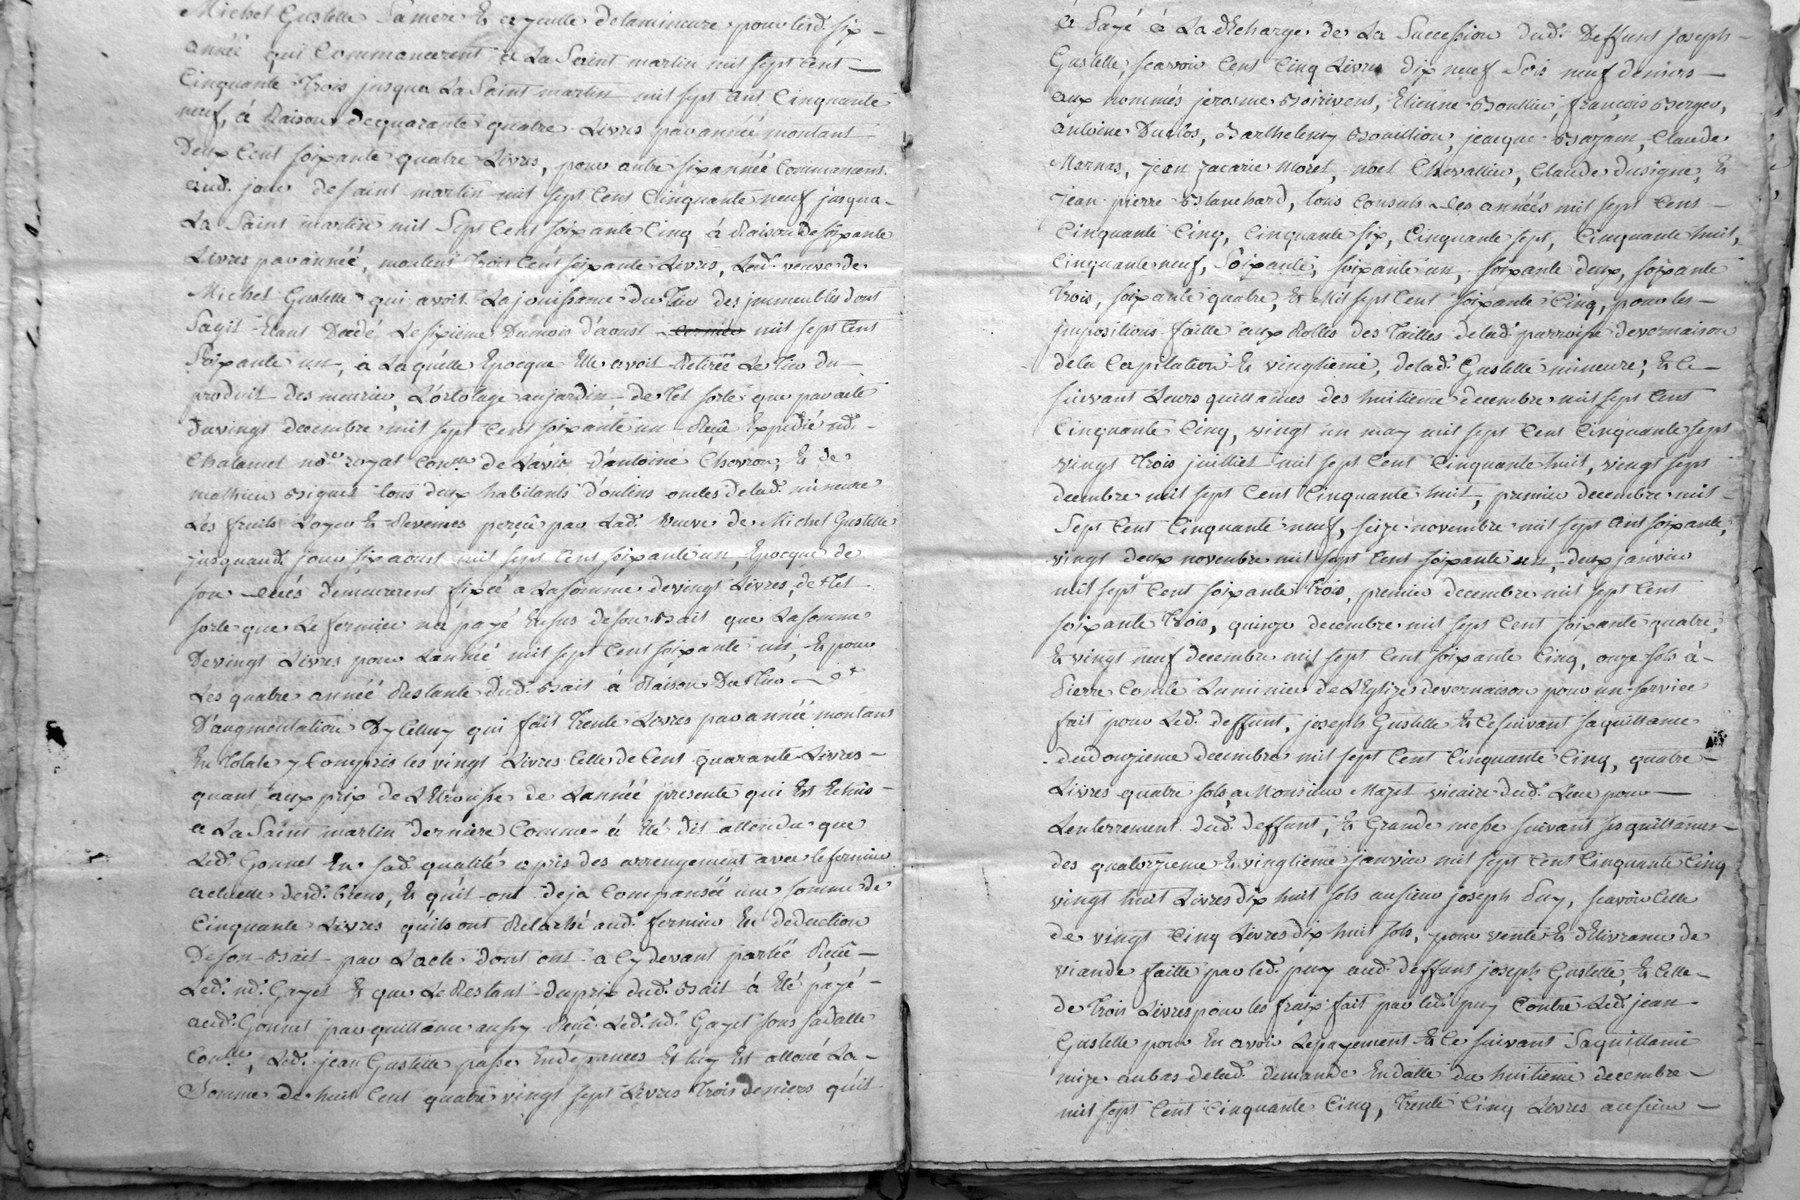 Michel Gustelle Sa mere et ayeulle delamineure pour lesd. six
année qui Commancerent a La Saint martin mil sept cent
Cinquante trois jusqua La Saint martin mil sept cent Cinquante
neuf, à Raison de quarante quatre Livres par année montant
Deux Cent soixante quatre Livres, pour autre six année Commancens
aud. jour de Saint martin mil sept cens Cinquante neuf jusqua
La Saint martin mil Sept Cent soixante Cinq á Raison de soixante
Livres par année, montent trois Cent soixante Livres, Lad. veuve de
Michel Gustelle qui avoit La jouissance du tier des jmmeubles dont
Sagit Etant Decedé Le sixieme Dumois d'aoust mil sept Cent
Soixante un, à Laquelle Epocque Elle avoit Retirée Le tier du
produit des meurier, L'ortolage au jardin de tel sorte que par acte
du vingt decembre mil sept Cent soixante un Reçû Expedié nd.
Chalamel no.re royal de Lavis d'antoine Chevron, Et de
mathieu tous deux habitants d'oulins oncles delad. mineure
Les fruits Loyer Et Revenues perçû par Lad. veuve de Michel Gustelle
jusquaud. jour six aoust mil sept Cent soixante un, Epocque de
son decés demeurerent fixéé a La somme de vingt Livres, de tel
sorte que Le fermier na payé Ensus de son Bail que La somme
De vingt Livres pour Lannéé mil sept Cent soixante un, Et pour
Les quatre année Restante dud. Bail á Raison Du tier
D'augmentation Dyceluy qui fait trente Livres par année montans
En totale y Compris les vingt Livres Celle de Cent quarante Livres
quant aux prix de L de Lannéé presente qui Est Echus
a La Saint martin derniere Comme á Eté dit attendu que
Led. Gonnet En sad. qualité a pris des arrengement avec le fermier
actuelle desd. biens, Et quil ont deja Compansée une somme de
Cinquante Livres quils ont Relaché aud. fermier En deduction
De son Bail par Lacte dont ont a Cy devant parléé Reçû
Led. nd. Gayet Et que Le Restant du prix dud. Bail à Eté payé
aud. Gonnet par quittance aussy Reçû Led. nd. Gayet sous sa datte
Led. jean Gustelle passe En dépances Et luy Est alloué La
Somme de huit Cent quatre vingt sept Livres trois deniers quil
à Payé à La decharge de La Succession dud. Deffunt joseph
Gustelle, scavoir Cent Cinq Livres dix neuf Sols neuf deniers
aux nommés jerosme Boirivent, Etienne Boullier, françois Berger,
antoine Duclos, Barthelemy Bouillion, jacque Bajam, Claude
Marnas, jean zacarie Moret, noel Chevallier, Claude dusigne, Et
jean pierre Blanchard, tous Consuls Les années mil sept Cens
Cinquante Cinq, Cinquante six, Cinquante sept, Cinquante huit,
Cinquante neuf, Soixante, soixante un, soixante deux, soixante
trois, soixante quatre, Et Mil sept Cent soixante Cinq, pour les
jmpositions faitte aux Rolles des tailles delad. parroisse devernaison
de la Capitation Et vingtieme, delad. Gustelle mineure; Et Ce
suivant Leurs quittances des huitieme decembre mil sept Cent
Cinquante Cinq, vingt un may mil sept Cent Cinquante sept
vingt trois juilliet mil sept Cent Cinquante huit, vingt sept
decembre mil sept Cent Cinquante huit, premier decembre mil
Sept Cent Cinquante neuf, seize novembre mil sept Cent soixante,
vingt deux novembre mil sept Cent soixante un, deux janvier
mil sept Cent soixante trois, premier decembre mil sept Cent
soixante trois, quinze decembre mil sept Cent soixante quatre,
Et vingt neuf decembre mil sept Cent soixante Cinq, onze sols á
Pierre Comte Luminier de L'Eglize devernaison pour un service
fait pour Led. deffunt, joseph Gustelle Et Ce suivant sa quittance
du douzieme decembre mil sept Cent Cinquante Cinq, quatre
Livres quatre sols, a Monsieur Mazet vicaire dud. Lieu pour
Lenterrement dud. deffunt, Et Grande messe suivant ses quittances
des quatorzieme Et vingtieme janvier mil sept Cent Cinquante Cinq
vingt huit Livres dix huit sols au sieur joseph Puy, scavoir Celle
de vingt Cinq Livres dix huit sols, pour vente Et delivrance de
viande faitte par led. puy aud. deffunt joseph Gustelle, Et Celle
de trois Livres pour les fraix fait par led. puy Contre Led. jean
Gustelle pour En avoir Lepayement Et Ce suivant Sa quittance
mize au bas delad. demande En datte du huitieme decembre
mil sept Cent Cinquante Cinq, trente Cinq Livres au sieur